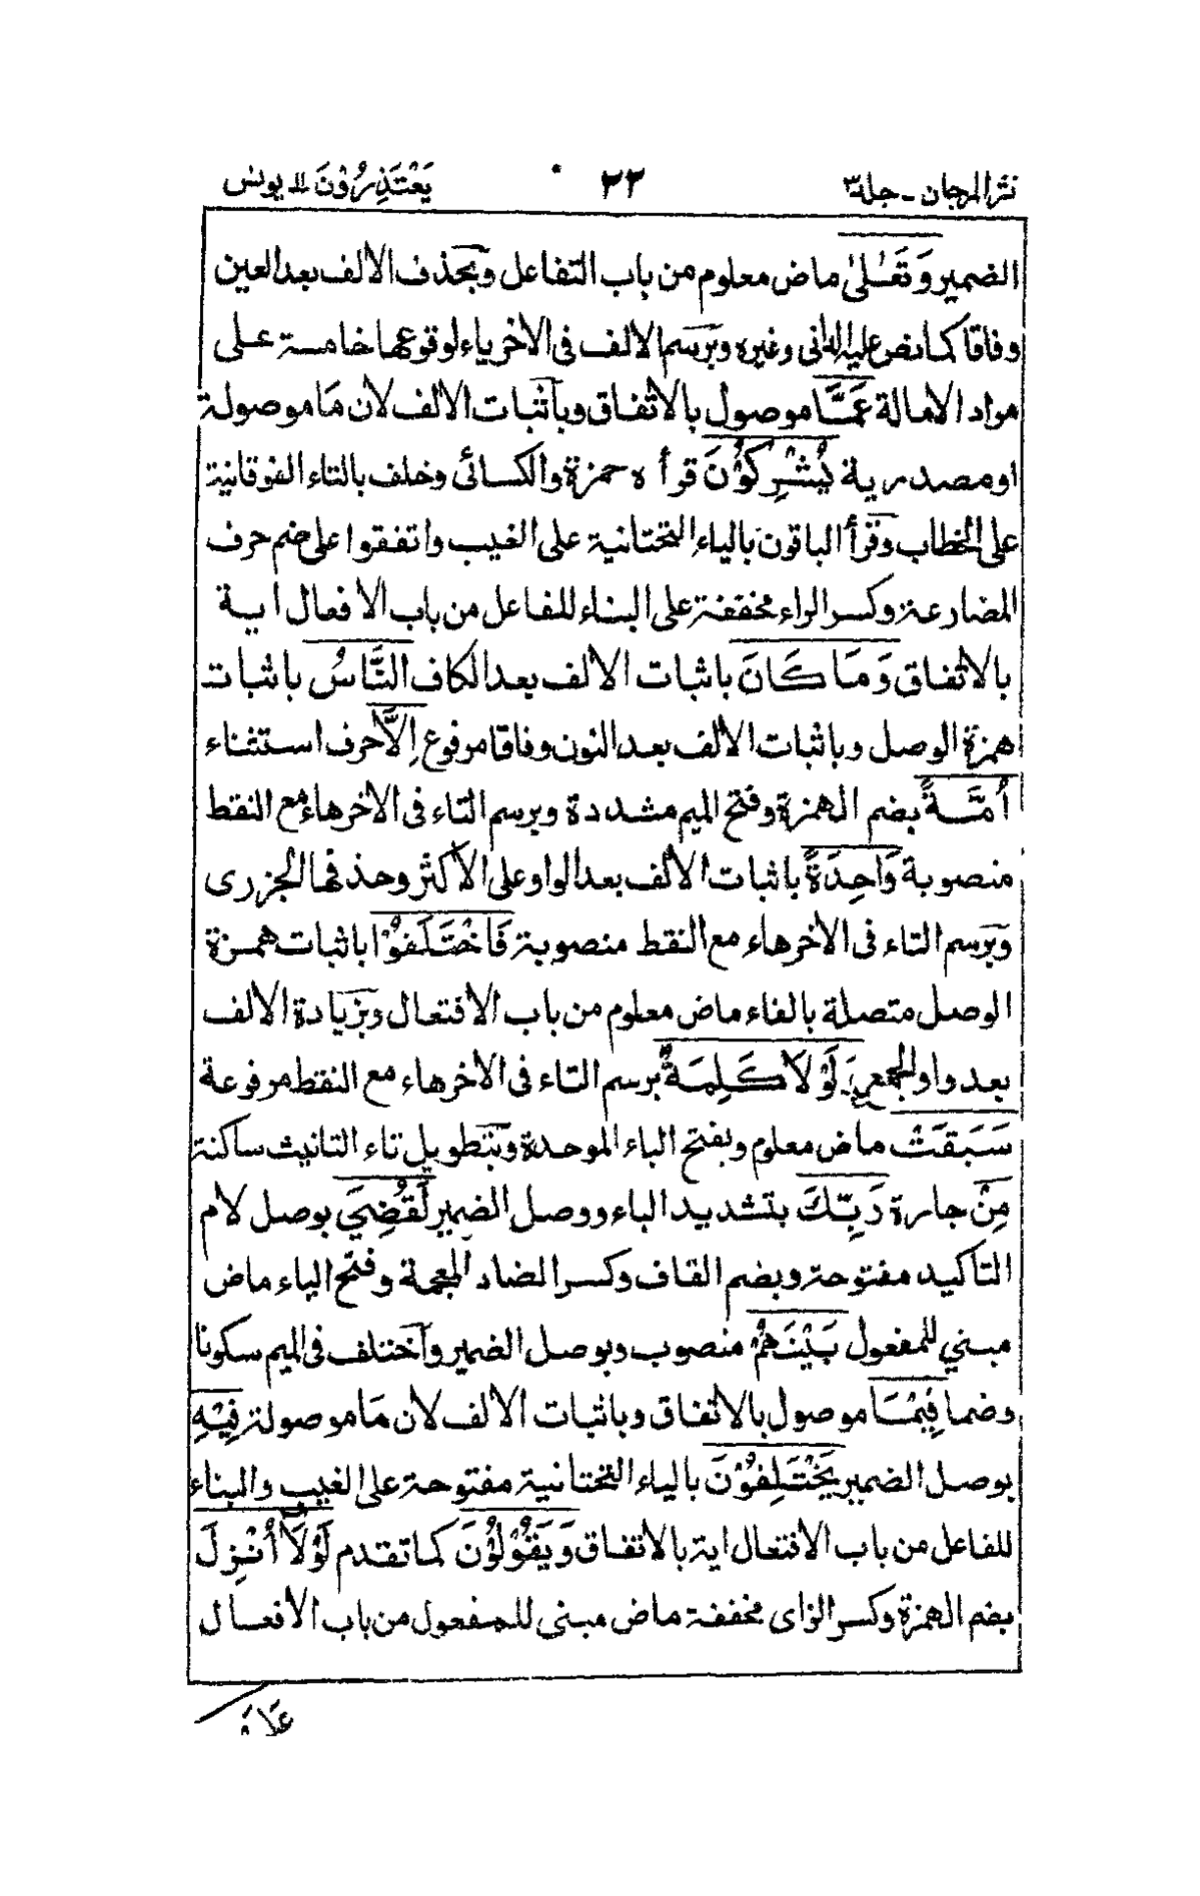 نثر المرجان - جلد ٣ ٢٣ يَعْتَذِرُوْنَ ١١ يونس
الضمير وَتَعٰلىٰ ماض معلوم من باب التفاعل وبحذف الالف بعد العين
وفاقا كما نص عليه الدانى وغيره وبرسم الالف فى الاخر ياء لوقوعها خامسة على
مراد الامالة عَمَّا موصول بالاتفاق وباثبات الالف لان مَا موصولة
او مصدرية يُشْرِكُوْنَ قرأه حمزة والكسائى وخلف بالتاء الفوقانية
على الخطاب وقرأ الباقون بالياء التحتانية على الغيب واتفقوا على ضم حرف
المضارعة وكسر الراء مخففة على البناء للفاعل من باب الافعال اية
بالاتفاق وَمَا كَانَ باثبات الالف بعد الكاف النَّاسُ باثبات
همزة الوصل وباثبات الالف بعد النون وفاقا مرفوع اِلَّا حرف استثناء
اُمَّةً بضم الهمزة وفتح الميم مشددة وبرسم التاء فى الاخر هاء مع النقط
منصوبة وَاحِدَةً باثبات الالف بعد الواو على الاكثر وحذفها الجزرى
وبرسم التاء فى الاخر هاء مع النقط منصوبة فَاخْتَلَفُوْا باثبات همزة
الوصل متصلة بالفاء ماض معلوم من باب الافتعال وبزيادة الالف
بعد واو الجمع وَلَوْلَا كَلِمَةٌ برسم التاء فى الاخر هاء مع النقط مرفوعة
سَبَقَتْ ماض معلوم وبفتح الباء الموحدة وبتطويل تاء التانيث ساكنة
مِنْ جارة رَبِّكَ بتشديد الباء ووصل الضمير لَقُضِيَ بوصل لام
التاكيد مفتوحة وبضم القاف وكسر الضاد المعجمة وفتح الياء ماض
مبني للمفعول بَيْنَهُمْ منصوب وبوصل الضمير واختلف فى الميم سكونا
وضما فِيْمَا موصول بالاتفاق وباثبات الالف لان مَا موصولة فِيْهِ
بوصل الضمير يَخْتَلِفُوْنَ بالياء التحتانية مفتوحة على الغيب والبناء
للفاعل من باب الافتعال اية بالاتفاق وَيَقُوْلُوْنَ كما تقدم لَوْلَا اُنْزِلَ
بضم الهمزة وكسر الزاى مخففة ماض مبنى للمفعول من باب الافعال